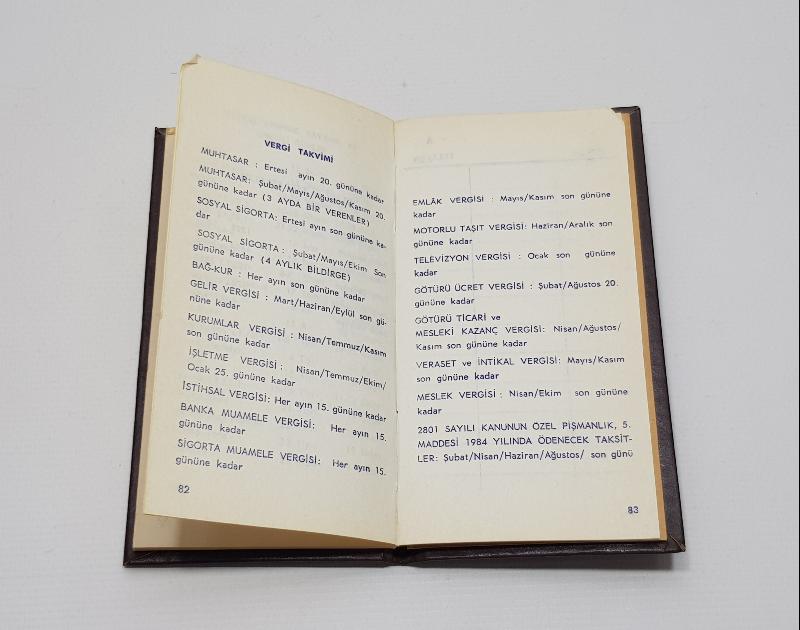 VERGİ TAKVİMİ
MUHTASAR : Ertesi ayın 20. gününe kadar
MUHTASAR: Şubat/Mayıs/Ağustos/Kasım 20.
gününe kadar (3 AYDA BİR VERENLER)
SOSYAL SİGORTA: Ertesi ayın son gününe ka-
dar
SOSYAL SİGORTA : Şubat/Mayıs/Ekim Son
gününe kadar (4 AYLIK BİLDİRGE)
BAĞ-KUR : Her ayın son gününe kadar
GELİR VERGİSİ : Mart/Haziran/Eylül son gü-
nüne kadar
KURUMLAR VERGİSİ : Nisan/Temmuz/Kasım
son gününe kadar
İŞLETME VERGİSİ: Nisan/Temmuz/Ekim/
Ocak 25. gününe kadar
İSTİHSAL VERGİSİ: Her ayın 15. gününe kadar
BANKA MUAMELE VERGİSİ: Her ayın 15.
gününe kadar
SİGORTA MUAMELE VERGİSİ: Her ayın 15.
gününe kadar
82
EMLÂK VERGİSİ : Mayıs/Kasım son gününe
kadar
MOTORLU TAŞIT VERGİSİ: Haziran/Aralık son
gününe kadar
TELEVİZYON VERGİSİ : Ocak son gününe
kadar
GÖTÜRÜ ÜCRET VERGİSİ : Şubat/Ağustos 20.
gününe kadar
GÖTÜRÜ TİCARİ ve
MESLEKİ KAZANÇ VERGİSİ: Nisan/Ağustos/
Kasım son gününe kadar
VERASET ve İNTİKAL VERGİSİ: Mayıs/Kasım
son gününe kadar
MESLEK VERGİSİ : Nisan/Ekim son gününe
kadar
2801 SAYILI KANUNUN ÖZEL PİŞMANLIK, 5.
MADDESİ 1984 YILINDA ÖDENECEK TAKSİT-
LER: Şubat/Nisan/Haziran/Ağustos/ son günü
83